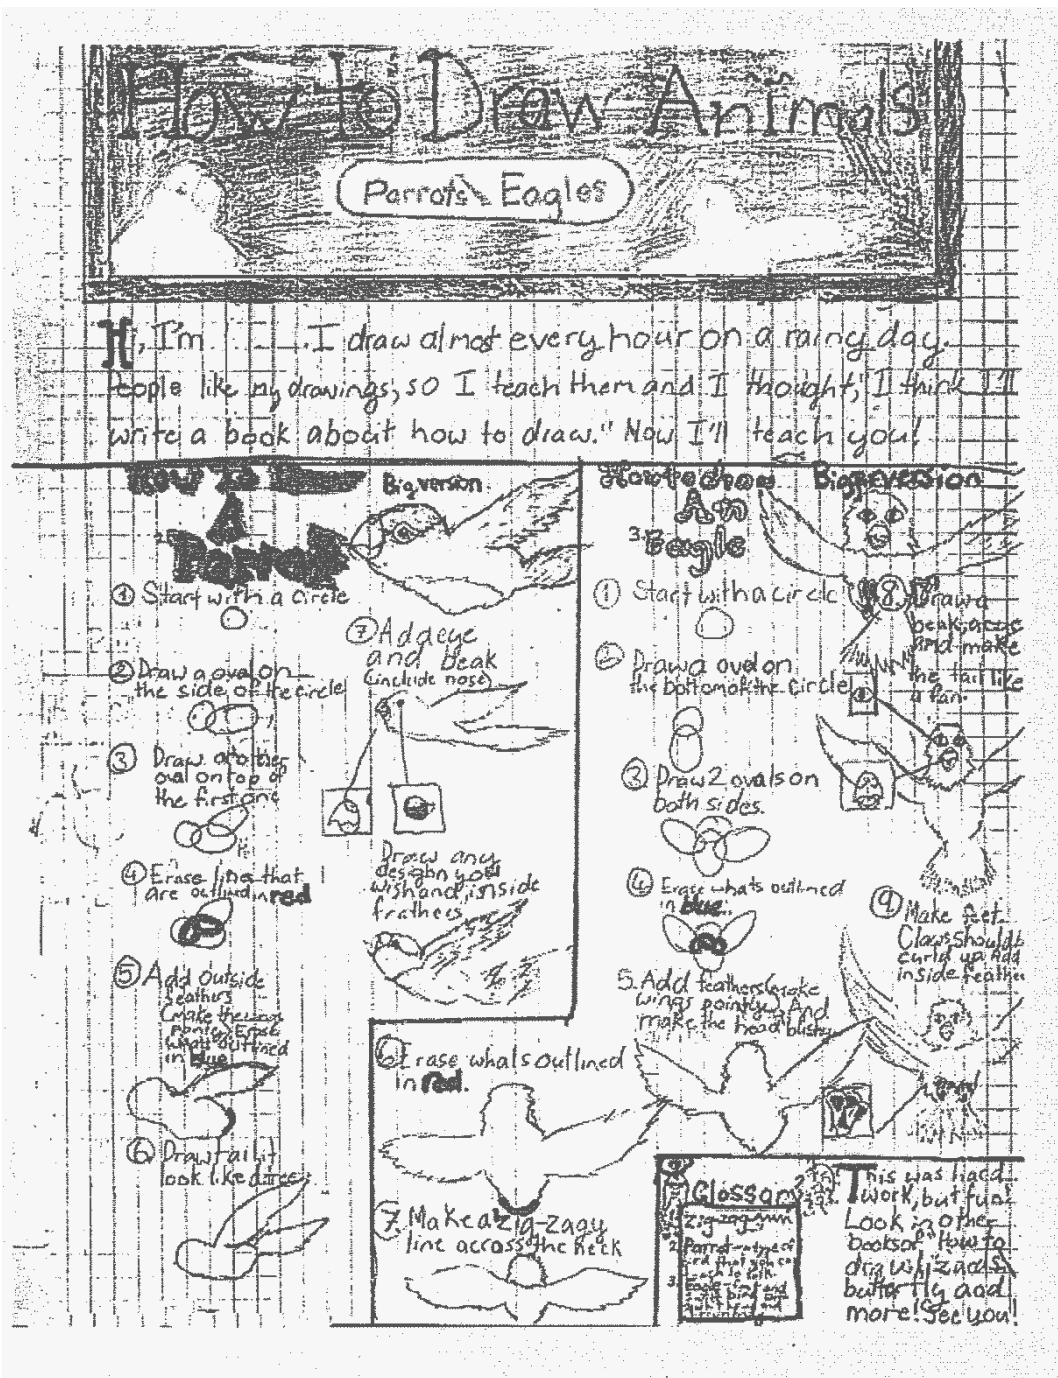 How To Draw Animals
Parrots Eagles
Hi, I'm I draw almost every hour on a rainy day.
People like my drawings, so I teach them and I thought, "I think I'll
write a book about how to draw." Now I'll teach you!
How To
A
Parrot
Big version
① Start with a circle
② Draw a oval on
the side, of the circle
③ Draw another
oval on top of
the first one
④ Erase lines that
are outlined in red
⑤ Add outside
feathers
(make the
pointy) Erase
whats outlined
in blue
⑥ Draw tail it
look like
⑦ Add eye
and beak
(include nose)
Draw any
design you
wish and, inside
frathers
How to draw
An
Eagle
Big version
① Start with a circle
② Draw a oval on
the bottom of the circle
③ Draw 2 ovals on
both sides.
④ Erase whats outlined
in blue.
5. Add feathers (make
wings pointy) And
make the head
⑥ Erase whats outlined
in red.
⑦ Make a zig-zagy
line across the neck
8. Draw a
beak,
and make
the tail like
a fan.
⑨ Make feet.
Claws should b
curld up Add
inside feather
Glossary
1. zig-zag
2. Parrot
3. Eagle
This was hard
work, but fun!
Look in other
books of "How to
draw"
butterfly and
more! See you!